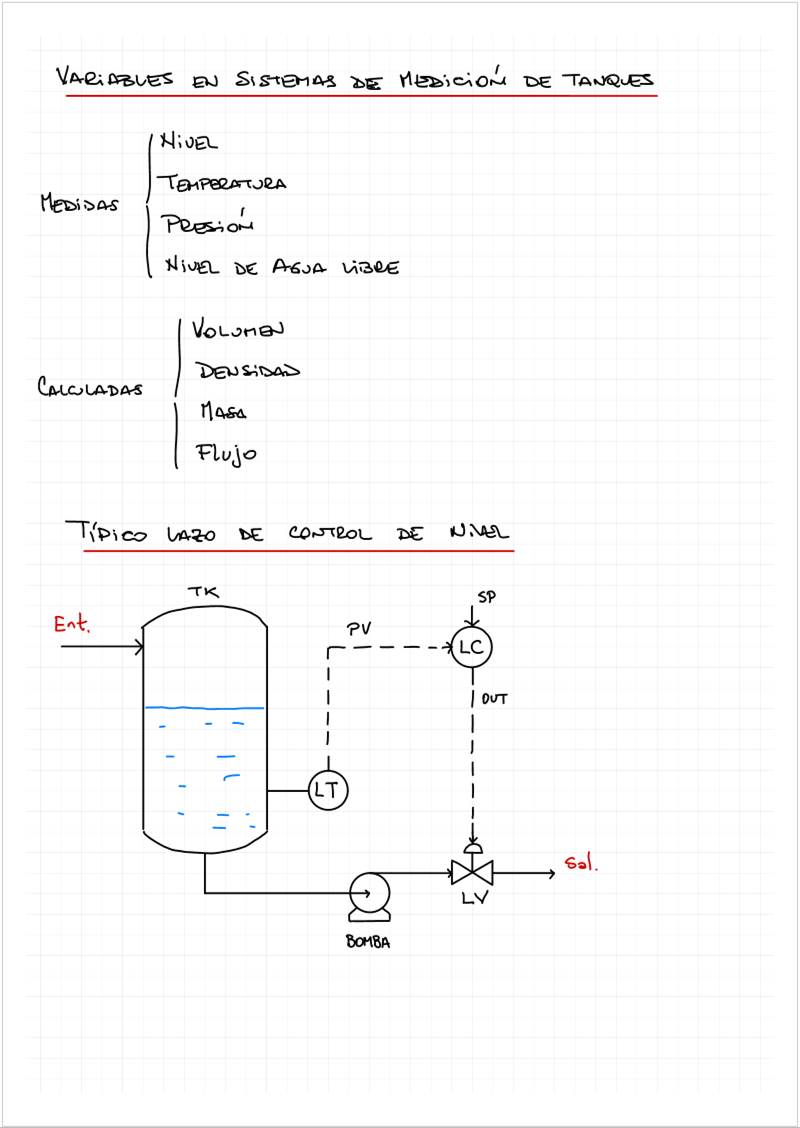 VARIABLES EN SISTEMAS DE MEDICIÓN DE TANQUES
NIVEL
TEMPERATURA
MEDIDAS
PRESIÓN
NIVEL DE AGUA LIBRE
VOLUMEN
DENSIDAD
CALCULADAS
MASA
Flujo
TÍPICO LAZO DE CONTROL DE NIVEL
TK
SP
Ent.
PV
LC
OUT
LT
Sal.
LV
BOMBA